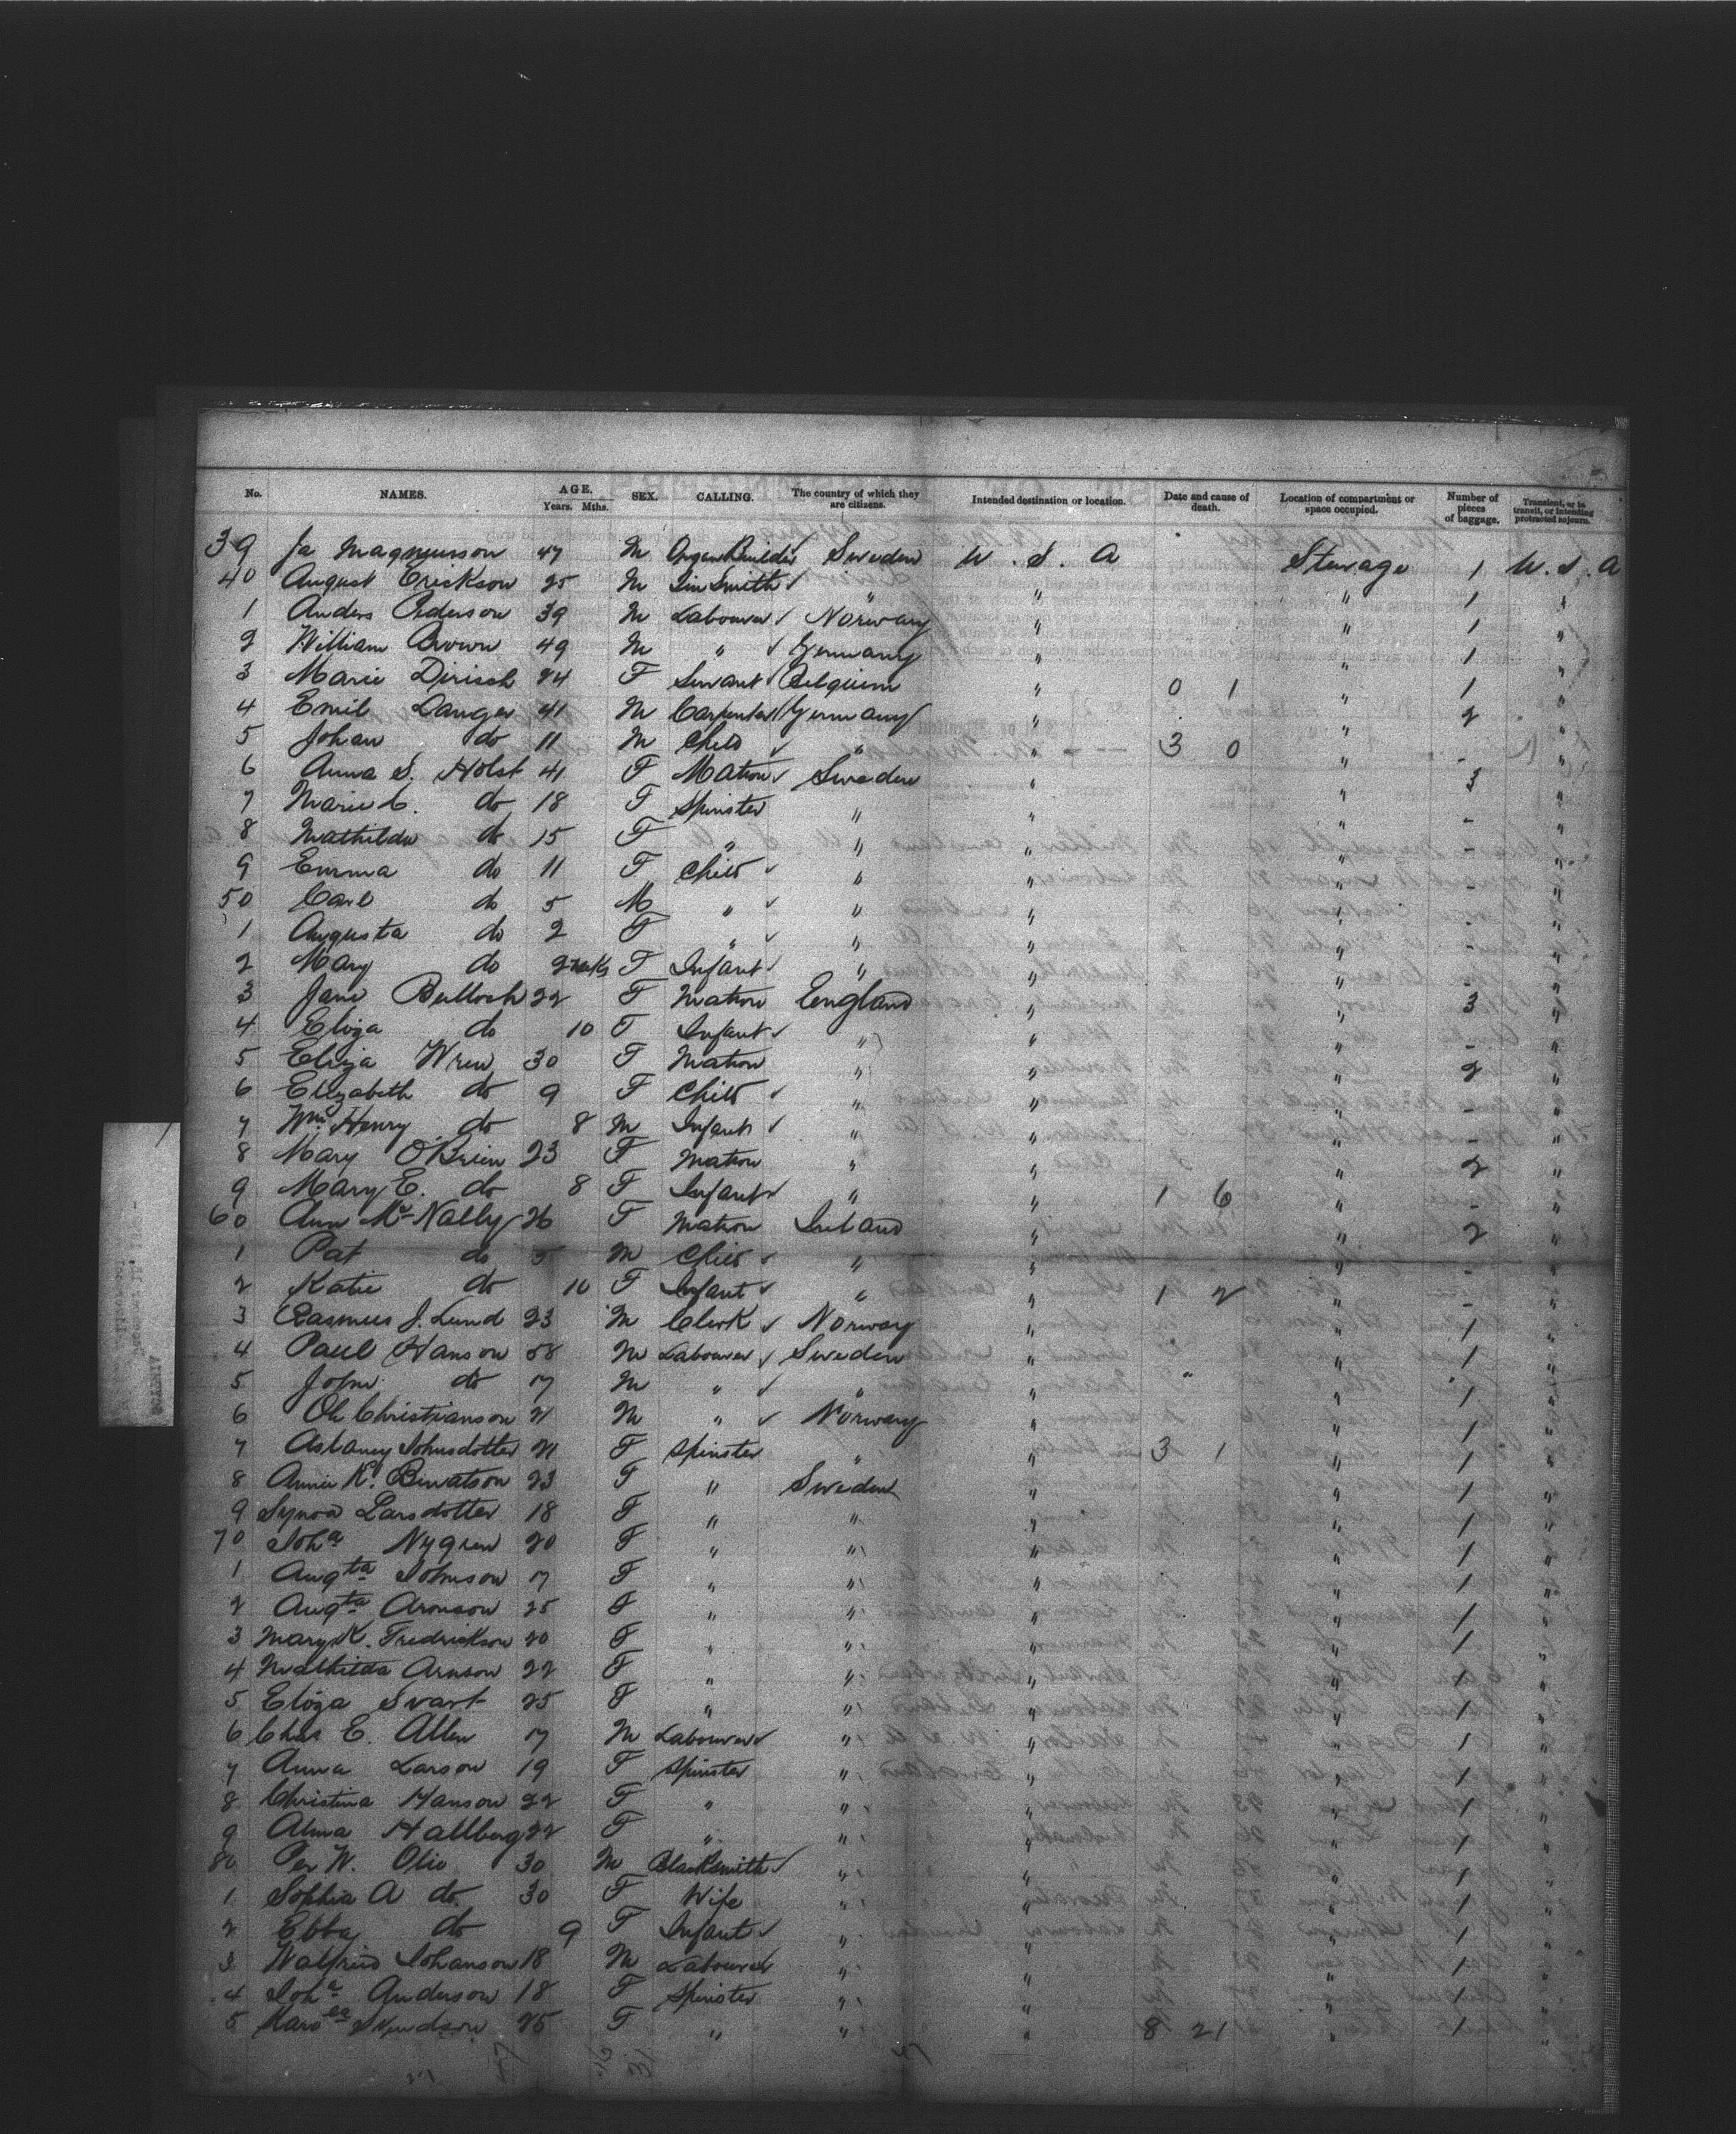 No. NAMES. AGE. Years. Mths. SEX. CALLING. The country of which they are citizens. Intended destination or location. Date and cause of death. Location of compartment or space occupied. Number of pieces of baggage. Transient, or in transit, or intending protracted sojourn.
39 Ja Magnusson 47 M Organ Builder Sweden U.S.A Sterage 1 U.S.A
40 August Erickson 25 M Tin Smith " " " 1 "
1 Anders Pederson 39 M Labourer Norway " " 1 "
2 William Brown 49 M " Germany " " 1 "
3 Marie Dirisch 24 F Servant Belguim " 0 1 " 1 "
4 Emil Langer 41 M Carpenter Germany " " 2 "
5 Johan do 11 M Child " " 3 0 " - "
6 Anna S. Holst 41 F Matron Sweden " " 3 "
7 Marie C. do 18 F Spinster " " " - "
8 Mathilda do 15 F " " " " - "
9 Emma do 11 F Child " " " - "
50 Carl do 5 M " " " " - "
1 Augusta do 2 F " " " " - "
2 Mary do 2 weeks F Infant " " " - "
3 Jane Bulloch 22 F Matron England " " 3 "
4 Eliza do 10 F Infant " " " - "
5 Eliza Wren 30 F Matron " " " 2 "
6 Elizabeth do 9 F Child " " " - "
7 Wm Henry do 8 M Infant " " " - "
8 Mary O'Brien 23 F Matron " " " 2 "
9 Mary E. do 8 F Infant " " 1 6 " - "
60 Ann McNally 26 F Matron Ireland " " 2 "
1 Pat do 5 M Child " " " - "
2 Katie do 10 F Infant " " 1 2 " - "
3 Rasmus J. Lund 23 M Clerk Norway " " 1 "
4 Paul Hanson 58 M Labourer Sweden " " 1 "
5 John do 17 M " " " " 1 "
6 Ole Christianson 21 M " Norway " " 1 "
7 Johnsdotter 21 F Spinster " " 3 1 " 1 "
8 Annie K. 23 F " Sweden " " 1 "
9 Synoa Larsdotter 18 F " " " " 1 "
70 Joha Nygren 20 F " " " " 1 "
1 Augta Johnson 17 F " " " " 1 "
2 Augta Aronson 25 F " " " " 1 "
3 Mary K. Fredrickson 20 F " " " " 1 "
4 Mathilda Arnson 22 F " " " " 1 "
5 Eliza Svart 25 F " " " " 1 "
6 Chas E. Allen 17 M Labourer " " " 1 "
7 Anna Larson 19 F Spinster " " " 1 "
8 Christina Hanson 22 F " " " " 1 "
9 Alma Hallberg 22 F " " " " 1 "
80 Per W. Olio 30 M Blacksmith " " " 1 "
1 Sophia A do 30 F Wife " " " 1 "
2 Ebba do 9 F Infant " " " 1 "
3 Walfrid Johanson 18 M Labourer " " " 1 "
4 Joha Anderson 18 F Spinster " " " 1 "
5 25 F " " " 8 21 " 1 "